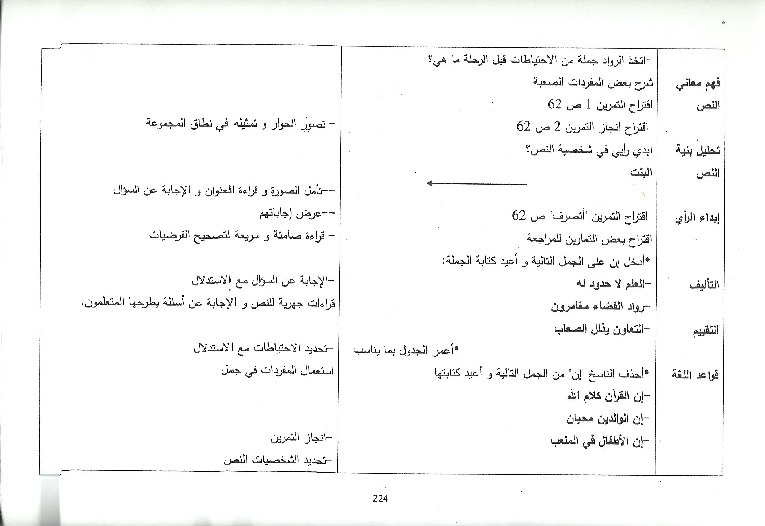 -اتخذ الرواد جملة من الاحتياطات قبل الرحلة ما هي؟
فهم معاني
شرح بعض المفردات الصعبة
النص
اقتراح التمرين 1 ص 62
- تصور الحوار و تمثيله في نطاق المجموعة
اقتراح انجاز التمرين 2 ص 62
تحليل بنية
ابدي رأيي في شخصية النص؟
النص
البنت
--تأمل الصورة و قراءة العنوان و الإجابة عن السؤال
--عرض إجاباتهم
إبداء الرأي
اقتراح التمرين "أتصرف" ص 62
- قراءة صامتة و سريعة لتصحيح الفرضيات
اقتراح بعض التمارين للمراجعة
*أدخل إن على الجمل التالية و أعيد كتابة الجملة:
التأليف
-العلم لا حدود له
-الإجابة عن السؤال مع الاستدلال
-رواد الفضاء مغامرون
قراءات جهرية للنص و الإجابة عن أسئلة يطرحها المتعلمون.
التقييم
-التعاون يذلل الصعاب
*أعمر الجدول بما يناسب
-تحديد الاحتياطات مع الاستدلال
قواعد اللغة
*أحذف الناسخ "إن" من الجمل التالية و أعيد كتابتها
استعمال المفردات في جمل
-إن القرآن كلام الله
-إن الوالدين محبان
-إن الأطفال في الملعب
-انجاز التمرين
-تحديد الشخصيات النص
224